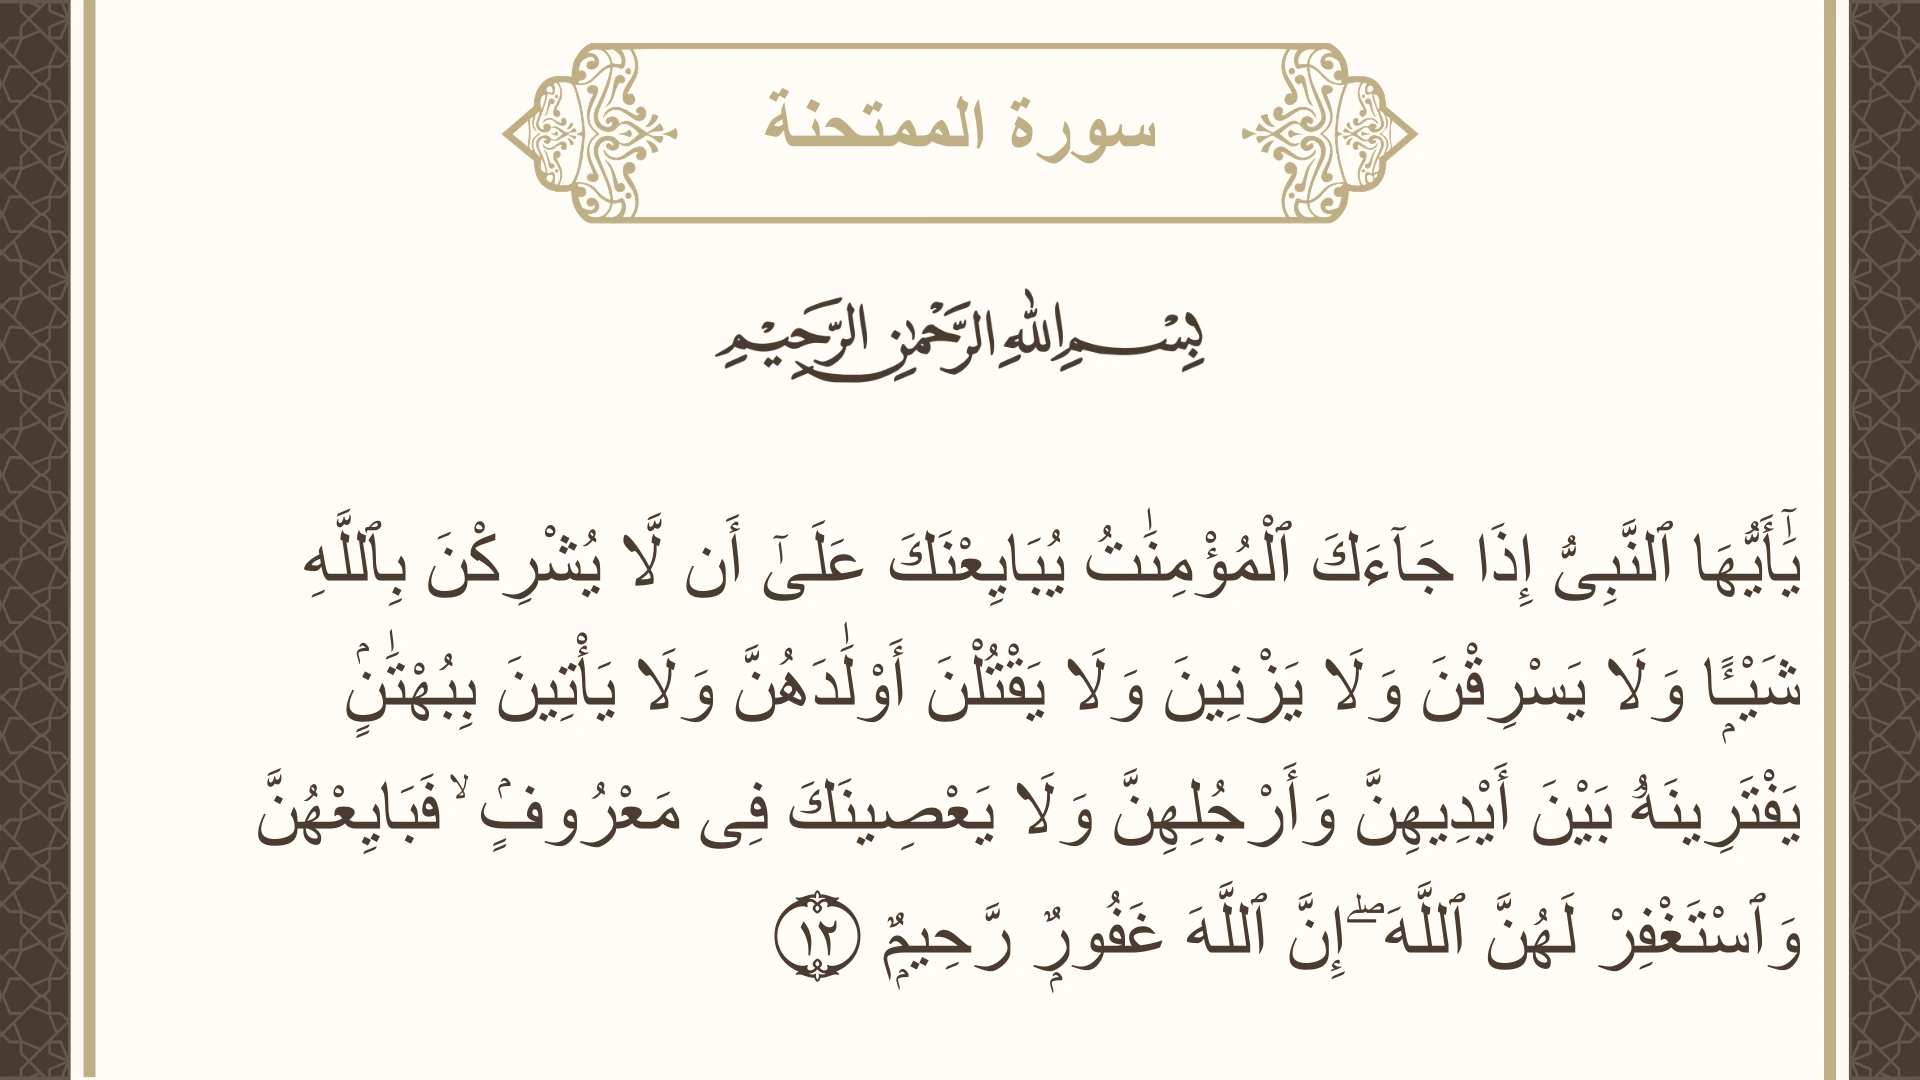 سورة الممتحنة
بِسْمِ اللهِ الرَّحْمٰنِ الرَّحِيْمِ
يَٰٓأَيُّهَا ٱلنَّبِىُّ إِذَا جَآءَكَ ٱلْمُؤْمِنَٰتُ يُبَايِعْنَكَ عَلَىٰٓ أَن لَّا يُشْرِكْنَ بِٱللَّهِ
شَيْـًۭٔا وَلَا يَسْرِقْنَ وَلَا يَزْنِينَ وَلَا يَقْتُلْنَ أَوْلَٰدَهُنَّ وَلَا يَأْتِينَ بِبُهْتَٰنٍۢ
يَفْتَرِينَهُۥ بَيْنَ أَيْدِيهِنَّ وَأَرْجُلِهِنَّ وَلَا يَعْصِينَكَ فِى مَعْرُوفٍۢ ۙ فَبَايِعْهُنَّ
وَٱسْتَغْفِرْ لَهُنَّ ٱللَّهَ ۖ إِنَّ ٱللَّهَ غَفُورٌۭ رَّحِيمٌۭ ١٢